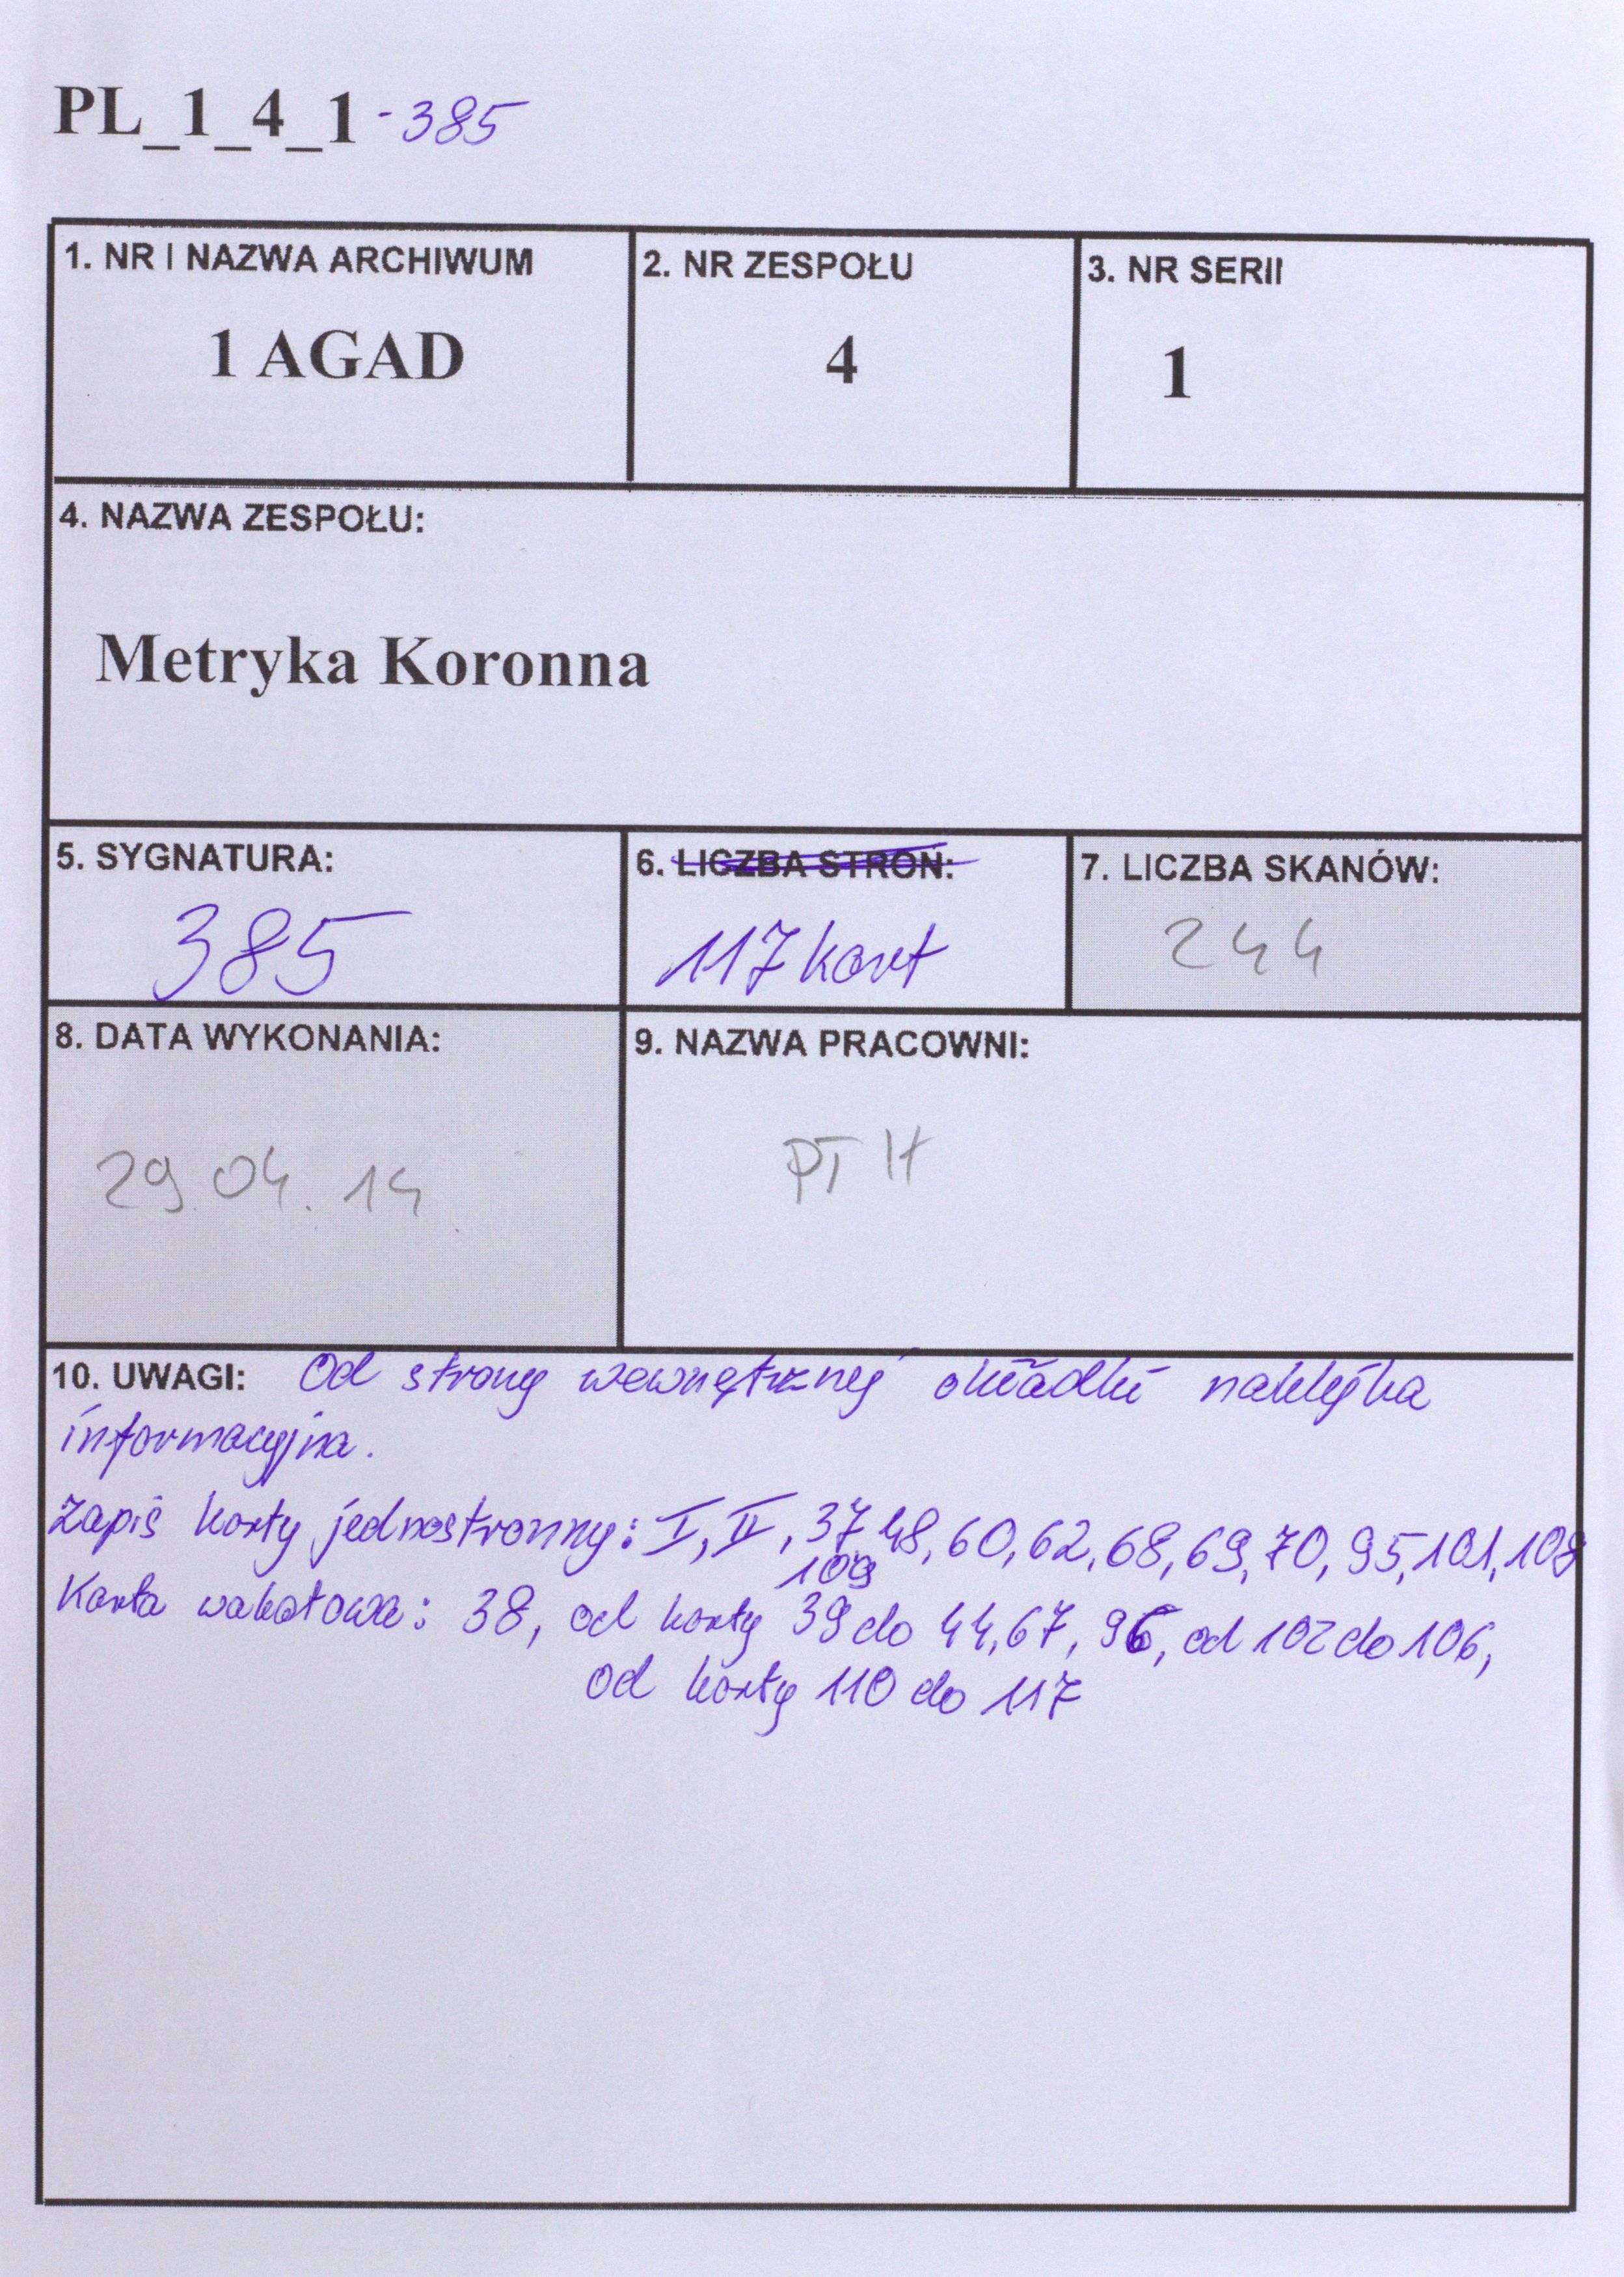 PL_1_4_1-385
1. NR I NAZWA ARCHIWUM
1 AGAD
2. NR ZESPOŁU
4
3. NR SERII
1
4. NAZWA ZESPOŁU:
Metryka Koronna
5. SYGNATURA:
385
6. LICZBA STRON:
117 kart
7. LICZBA SKANÓW:
244
8. DATA WYKONANIA:
29.04.14
9. NAZWA PRACOWNI:
PTH
10. UWAGI: Od strony wewnętrznej okładki naklejka
informacyjna.
Zapis karty jednostronny: I, II, 37 48, 60, 62, 68, 69, 70, 95, 101, 108
109
Karta wakatowa: 38, od karty 39 do 44, 67, 96, od 102 do 106,
od karty 110 do 117